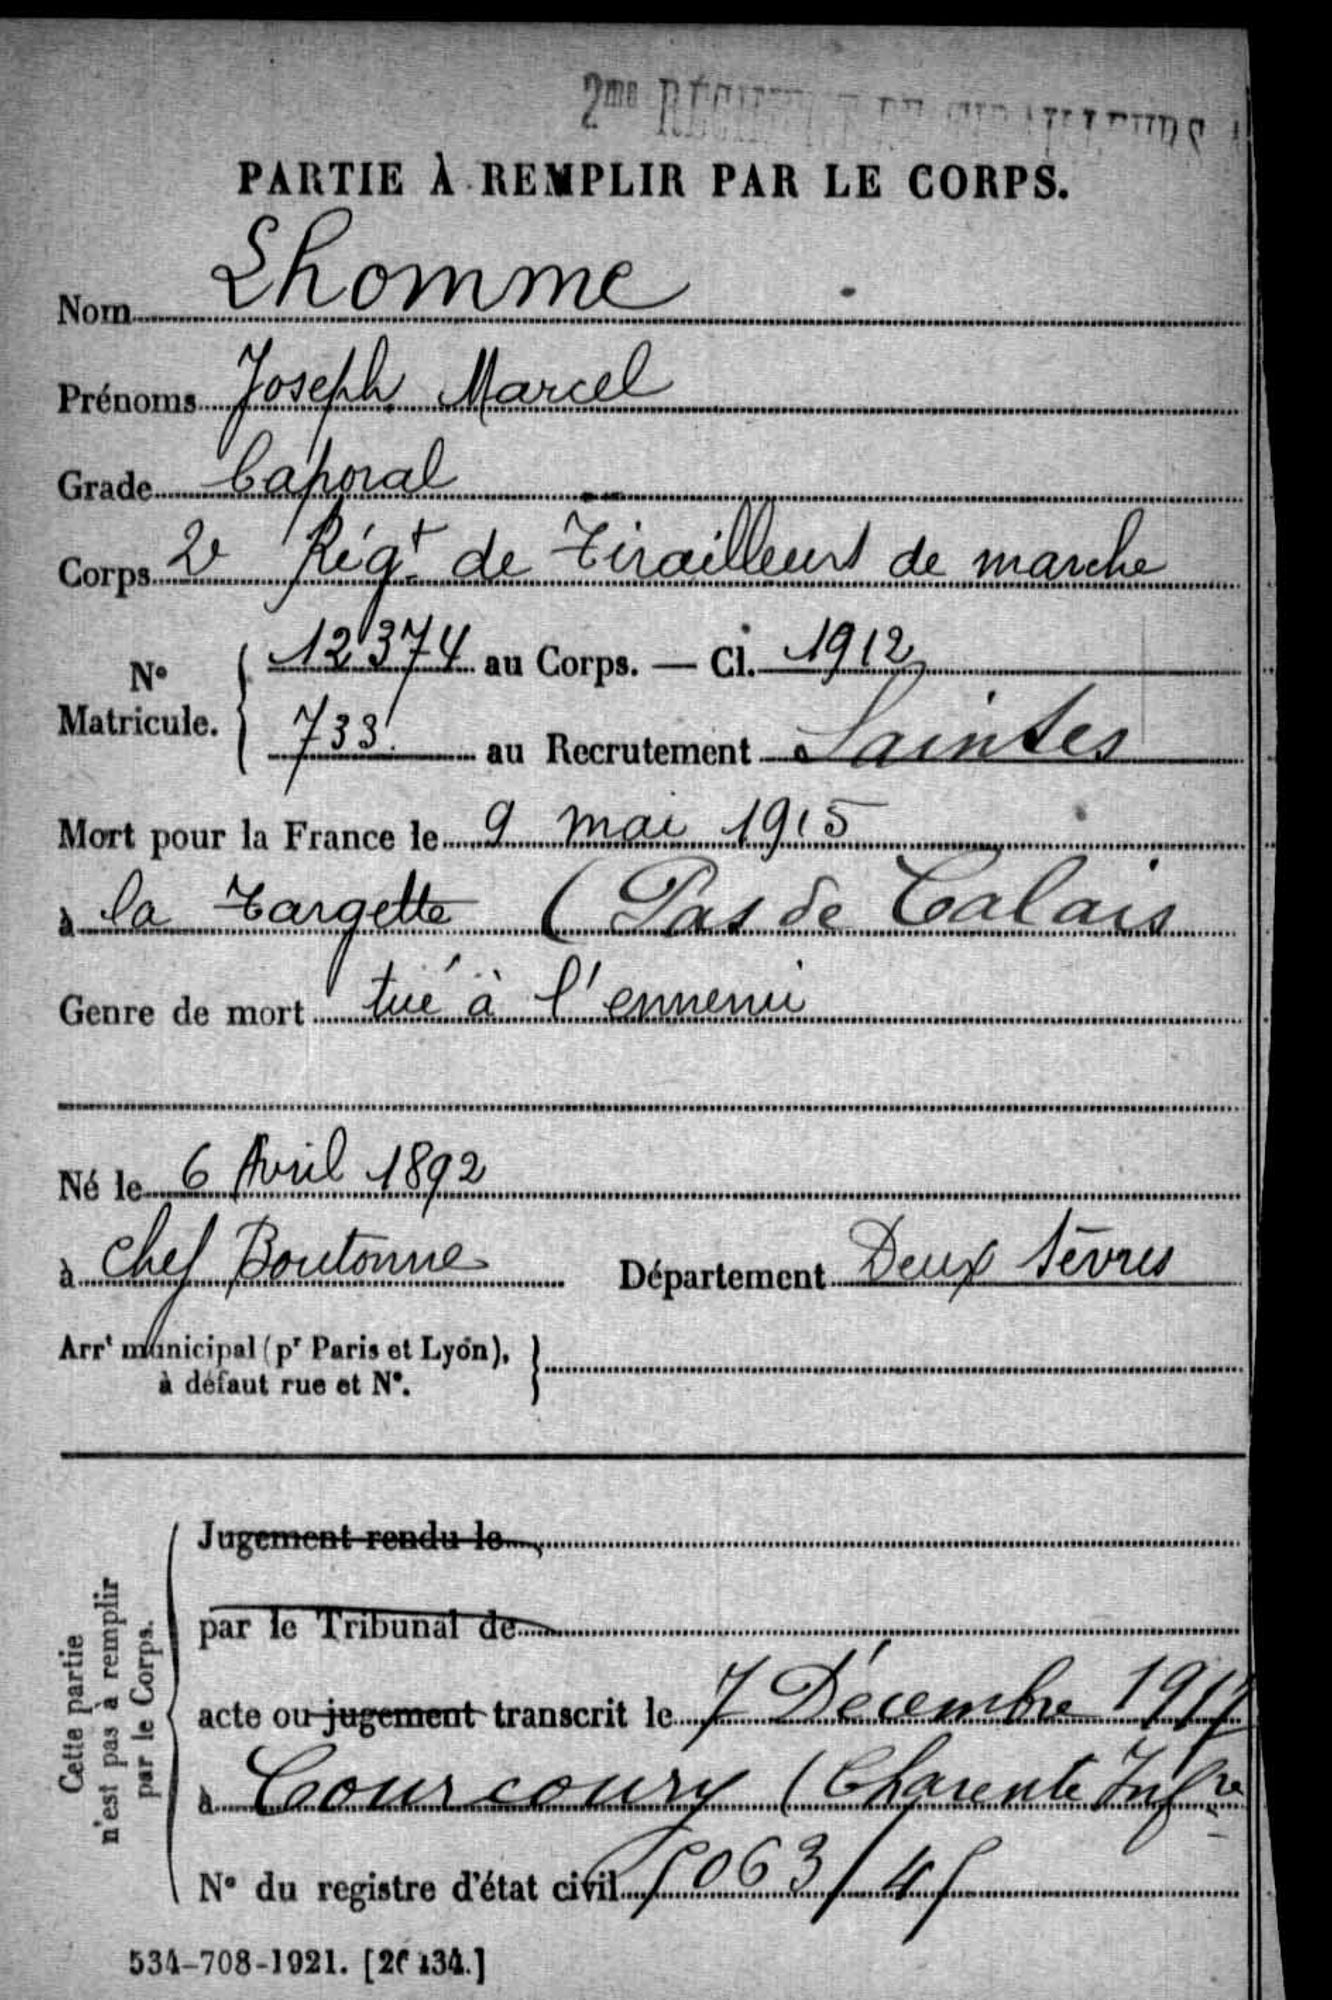 2me RÉGIMENT DE TIRAILLEURS
PARTIE À REMPLIR PAR LE CORPS.
Nom Lhomme
Prénoms Joseph Marcel
Grade Caporal
Corps 2e Régt de Tirailleurs de marche
No Matricule. 12374 au Corps. — Cl. 1912
733 au Recrutement Saintes
Mort pour la France le 9 mai 1915
à la Targette (Pas de Calais
Genre de mort tué à l'ennemi
Né le 6 Avril 1892
à Chef Boutonne Département Deux Sèvres
Arrt municipal (pr Paris et Lyon),
à défaut rue et N°.
Cette partie
n'est pas à remplir
par le Corps.
Jugement rendu le
par le Tribunal de
acte ou jugement transcrit le 7 Décembre 1917
à Courcoury (Charente Infre
N° du registre d'état civil 5063/45
534-708-1921. [26434.]